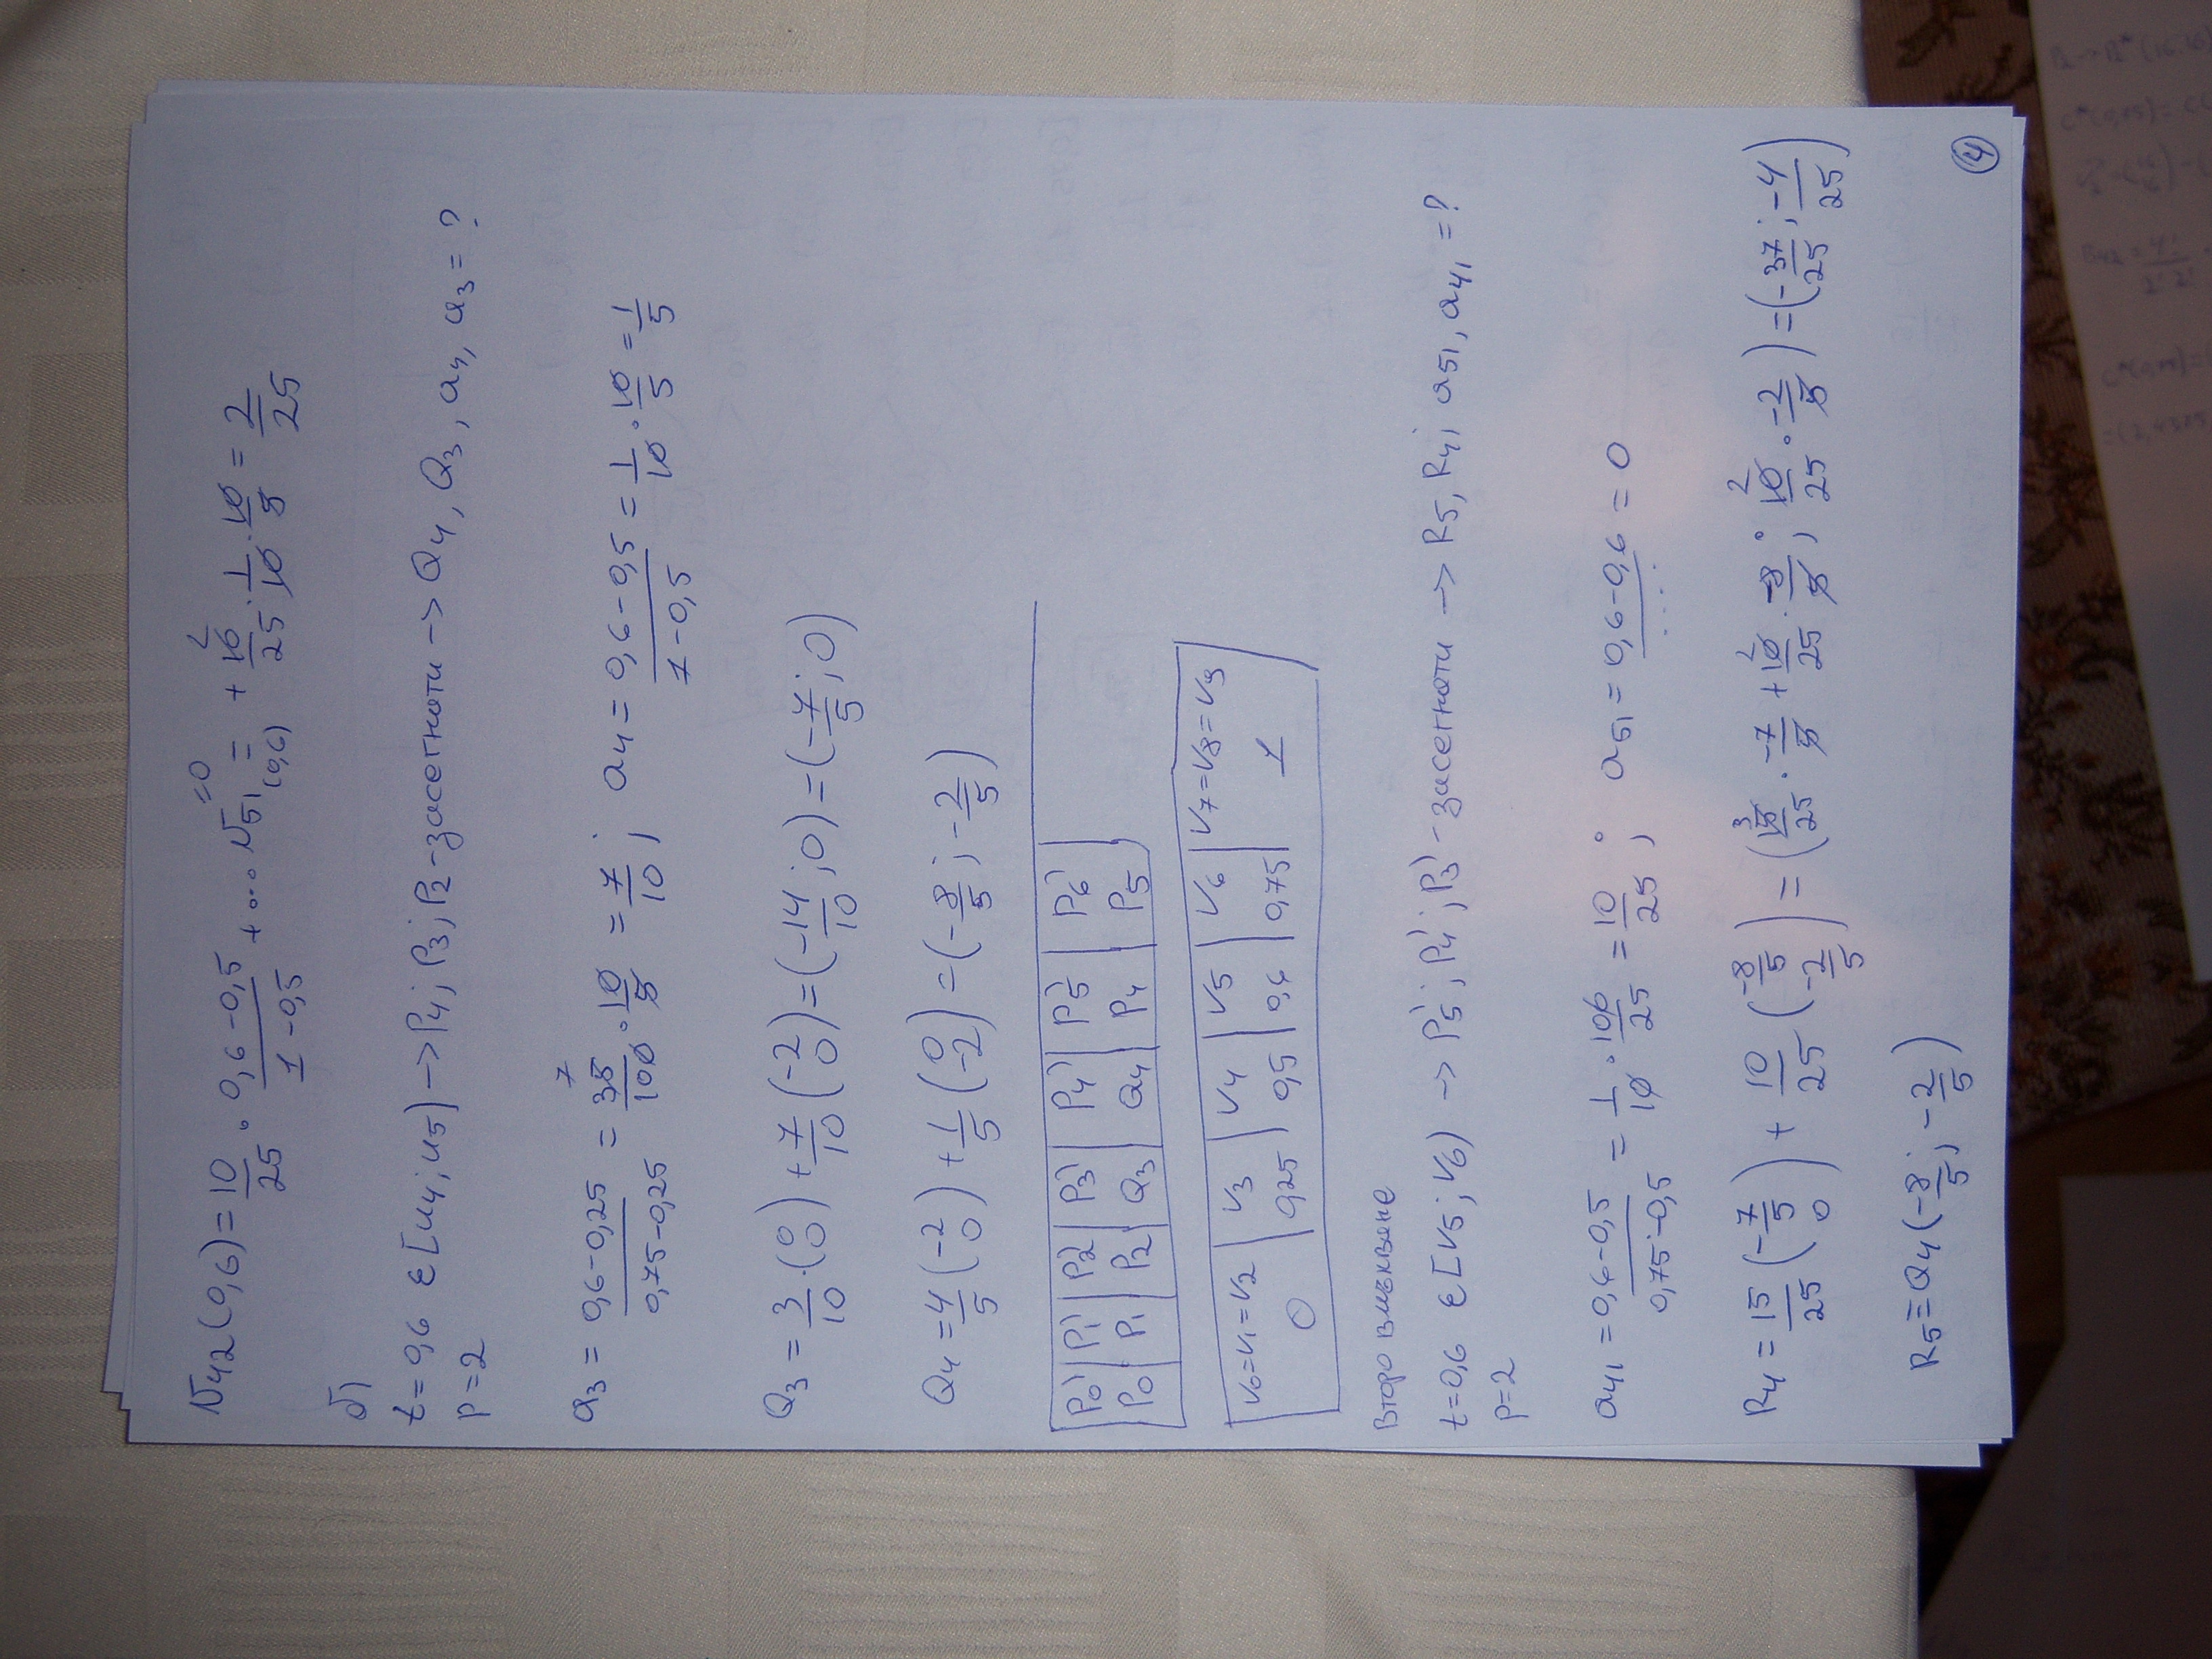 N42(0,6) = 10/25 · (0,6-0,5)/(1-0,5) + ... N51(0,6) = =0 + 10/25 2 · 1/10 · 10/5 = 2/25
б)
t=0,6 ∈[u4;u5) -> P4; P3; P2 - засегнати -> Q4, Q3, a4, a3 = ?
p=2
a3 = (0,6-0,25)/(0,75-0,25) = 35/100 7 · 10/5 = 7/10; a4 = (0,6-0,5)/(1-0,5) = 1/10 · 10/5 = 1/5
Q3 = 3/10 · (0 0) + 7/10 (-2 0) = (-14/10; 0) = (-7/5; 0)
Q4 = 4/5 (-2 0) + 1/5 (0 -2) = (-8/5; -2/5)
P0' P1' P2' P3' P4' P5' P6'
P0 P1 P2 Q3 Q4 P4 P5
V0=V1=V2 V3 V4 V5 V6 V7=V8=V9
0 0,25 0,5 0,6 0,75 1
Второ вмъкване
t=0,6 ∈[V5; V6) -> P5'; P4'; P3' - засегнати -> R5, R4; a51, a41 = ?
p=2
a41 = (0,6-0,5)/(0,75-0,5) = 1/10 · 100/25 = 10/25; a51 = (0,6-0,6)/.... = 0
R4 = 15/25 (-7/5 0) + 10/25 (-8/5 -2/5) = (15/25 3 · -7/5 + 10/25 2 · -8/5; 10/25 2 · -2/5) = (-37/25; -4/25)
R5 ≡ Q4 (-8/5; -2/5)
4